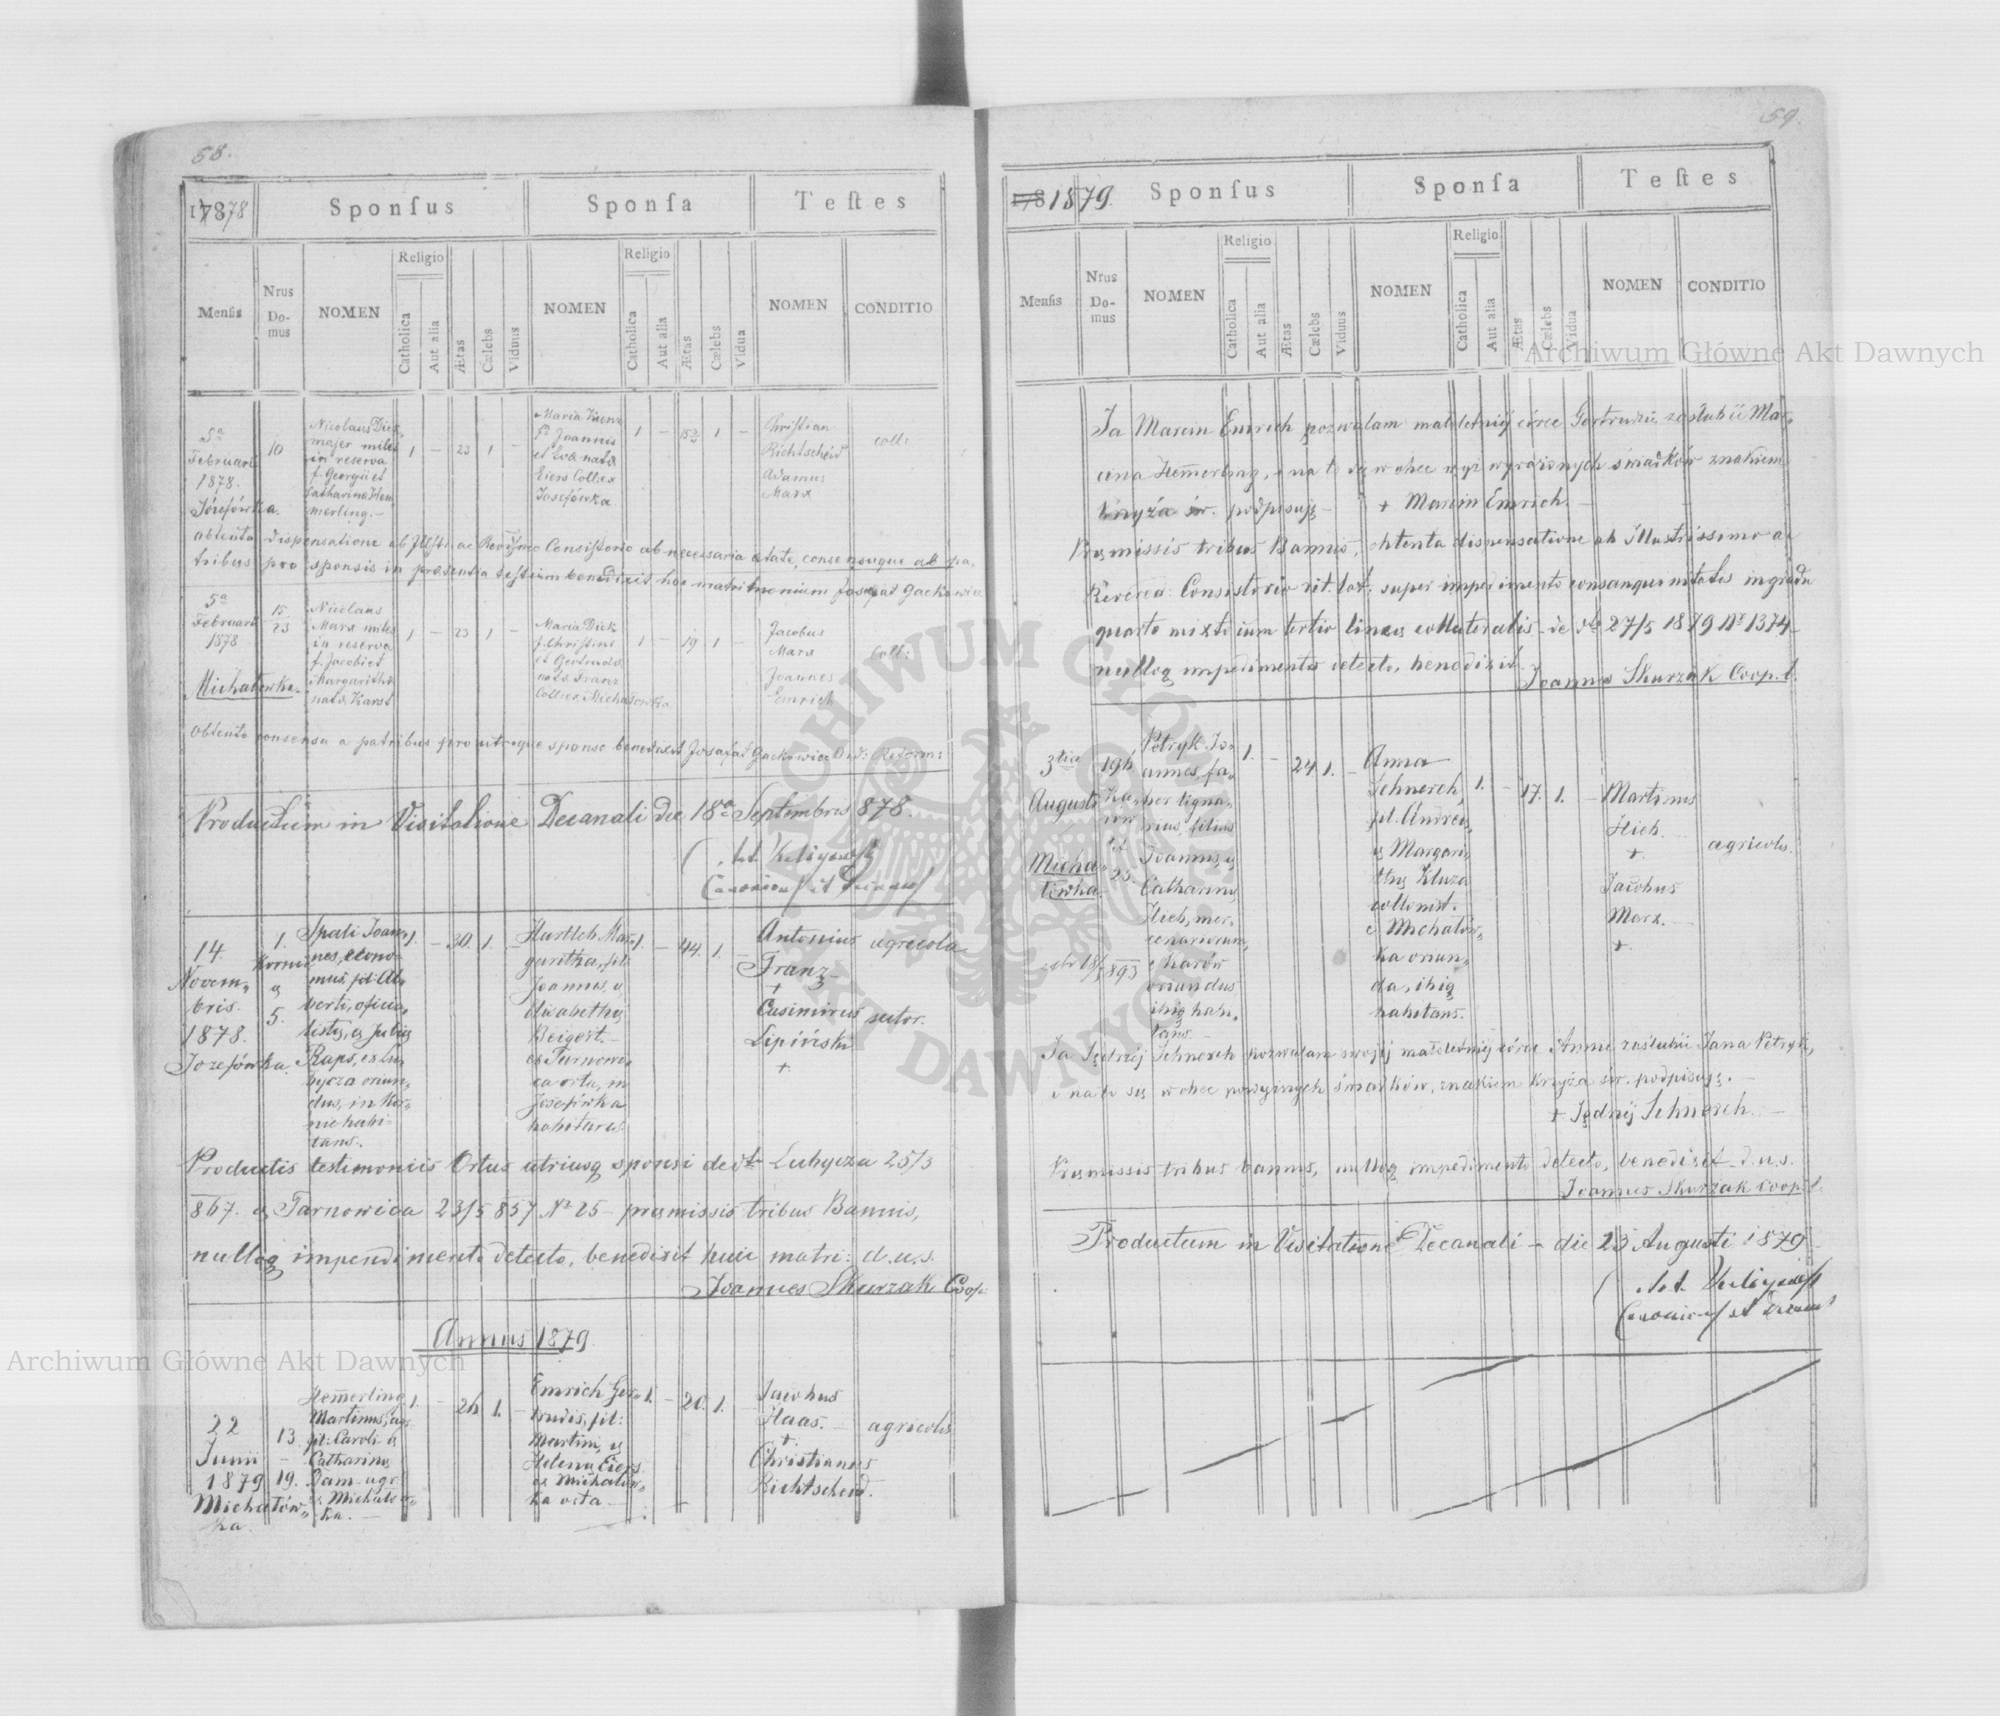 58.
1878
Sponſus
Sponſa
Teſtes
Menſis
Nrus Domus
NOMEN
Religio
Catholica
Aut alia
Ætas
Cælebs
Viduus
NOMEN
Religio
Catholica
Aut alia
Ætas
Cælebs
Vidua
NOMEN
CONDITIO
5a
Februarii
1878.
Józefówka.
10
Nicolaus Dick
majer miles
in reserva
f. Georgii et
Catharina Hem
merling.-
1 - 23 1 -
Maria Kunz
fa Joannis
et Eva nata
Eiers Coll: ex
Josefówka
1 - 1 -
Christian
Richtscheid
Adamus
Marx
coll:
obtenta dispensatione ab Illstr: ac Revdsmo Consistorio ab necessaria etate, consensuque ab pa-
tribus pro sponsis in praesentia testium benedixit hoc matrimonium Josafat Gackowicz
5a
Februarii
1878
Michałówka.
15
23
Nicolaus
Marx miles
in reserva
f. Jacobi et
Margaritha
nata Karst
1 - 23 1 -
Maria Dick
f. Christiani
et Gertrudis
nata Franz
Coll: ex Michałówka
1 - 19 1 -
Jacobus
Marx
Joannes
Emrich
Coll:
obtento consensu a patribus pro utroque sponso benedixit Josafat Gackowicz Ord: Reform:
Productum in Visitatione Decanali die 18a Septembris 878.
Canonicus et Decanus
14.
Novem-
bris.
1878.
Jozefówka.
1.
Kornie
&
5.
Spali Joan-
nes, econo-
mus, fil. Al-
berti, oficia-
listę, & Julię
Raps, ex Lu-
bycza oriun-
dus, in Kor-
nie habi-
tans.
1. - 30. 1. -
Hartleb Mar-
garitha, fil:
Joannis, &
Elisabethę
Beigert.-
ex Tarnowi-
ca orta, in
Josefówka
habitans.
1. - 44. 1. -
Antonius
Franz
+
Casimirus
Lipiński
+
agricola
sutor.
Productis testimoniis Ortus utriusq sponsi de dto Lubycza 25/3
867. & Tarnowica 23/5 857 No 25 - pręmissis tribus Bannis,
nulloq impedimento detecto, benedixit huic matri: d.u.s.
Joannes Skurzak Coop.
Annus 1879.
22
Junii
1879
Michałów-
ka.
13.
-
19.
Hem̄erling
Martinus, agr.
fil: Caroli &
Catharinę
Dam. agr.
e Michałów-
ka.
1. - 26 1. -
Emrich Ger-
trudis, fil:
Martini, &
Helenę Eiers.
ex Michałów-
ka orta -
1. - 20. 1. -
Jacobus
Haas.-
+
Christianus
Richtscheid.
agricolę
59.
1879.
Sponſus
Sponſa
Teſtes
Menſis
Nrus Domus
NOMEN
Religio
Catholica
Aut alia
Ætas
Cælebs
Viduus
NOMEN
Religio
Catholica
Aut alia
Ætas
Cælebs
Vidua
NOMEN
CONDITIO
Ja Marcin Emrich pozwalam małoletniéj córce Gertrudzie zaślubić Mar-
cina Hem̄erling, i na to się w obec wyż wyrażonych świadków znakiem
krzyża św. podpisuję - + Marcin Emrich.
Pręmissis tribus Bannis, obtenta dispensatione ab Illustrissimo ac
Reverend: Consistorio rit. lat: super impedimento consanguinitatis in gradu
quarto mixto cum tertio lineę collateralis - de dto 27/5 1879 Nr 1374 -
nulloq impedimento detecto, benedixit. Joannes Skurzak Coop.l.
3tia
Augusti
Micha-
łówka.
196
et
25.
Petryk Jo-
annes, fa-
ber ligna-
rius, filius
Joannis, &
Catharinę
Hich, mer-
cenariorum,
e Karów
oriundus
ibię habi-
tans.
1. - 24 1. -
Anna
Schnerch,
fil. Andreę,
& Margari-
thę Kluza
collonist.
e Michałów-
ka oriun-
da, ibię
habitans.
1. - 17. 1. -
Martinus
Hich.
+.
Jacobus
Marx.
+.
agricolę.
Ja Jędrzéj Schnerch pozwalam swojéj małoletniéj córce Annie zaślubić Jana Petryk,
i na to się w obec powyższych świadków, znakiem krzyża św. podpisuję.-
+ Jędrzéj Schnerch.-
Pręmissis tribus bannis, nulloq impedimento detecto, benedixit d.u.s.
Joannes Skurzak Coop.l.
Productum in Visitatione Decanali - die 23 Augusti 1879
Canonicus et Decanus
Archiwum Główne Akt Dawnych
Archiwum Główne Akt Dawnych
ARCHIWUM GŁÓWNE AKT DAWNYCH